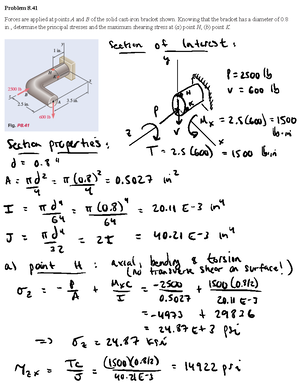 Problem 8.41
Forces are applied at points A and B of the solid cast-iron bracket shown. Knowing that the bracket has a diameter of 0.8
in., determine the principal stresses and the maximum shearing stress at (a) point H, (b) point K.
Section of Interest:
y
1 in.
H
K
P = 2500 lb
V = 600 lb
2500 lb
2.5 in.
3.5 in.
600 lb
Fig. P8.41
P
z
V
x
Mx = 2.5(600) = 1500
lb·in
T = 2.5(600) = 1500 lb·in
Section properties:
d = 0.8"
A = πd²/4 = π(0.8)²/4 = 0.5027 in²
I = πd⁴/64 = π(0.8)⁴/64 = 20.11 E-3 in⁴
J = πd⁴/32 = 2I = 40.21 E-3 in⁴
a) point H: axial, bending & torsion
(no transverse shear on surface!)
σz = -P/A + Mxc/I = -2500/0.5027 + 1500(0.8/2)/20.11 E-3
= -4973 + 29836
= 24.87 E+3 psi
⟹ σz = 24.87 kpsi
τzx = Tc/J = (1500)(0.8/2)/40.21E-3 = 14922 psi